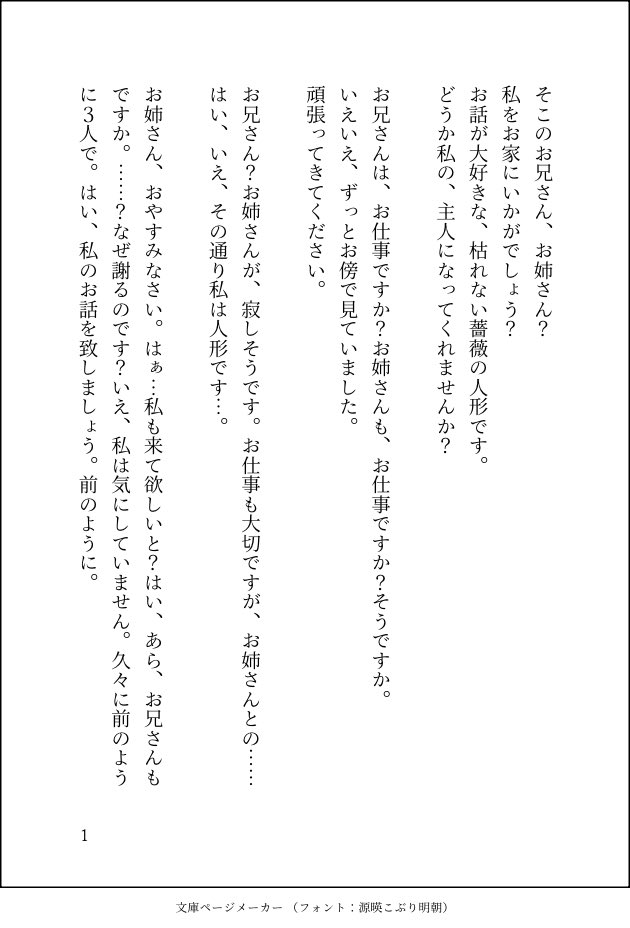 そこのお兄さん、お姉さん？
私をお家にいかがでしょう？
お話が大好きな、枯れない薔薇の人形です。
どうか私の、主人になってくれませんか？
お兄さんは、お仕事ですか？お姉さんも、お仕事ですか？そうですか。
いえいえ、ずっとお傍で見ていました。
頑張ってきてください。
お兄さん？お姉さんが、寂しそうです。お仕事も大切ですが、お姉さんとの……
はい、いえ、その通り私は人形です…。
お姉さん、おやすみなさい。はぁ…私も来て欲しいと？はい、あら、お兄さんも
ですか。……？なぜ謝るのです？いえ、私は気にしていません。久々に前のよう
に３人で。はい、私のお話を致しましょう。前のように。
1
文庫ページメーカー （フォント：源暎こぶり明朝）